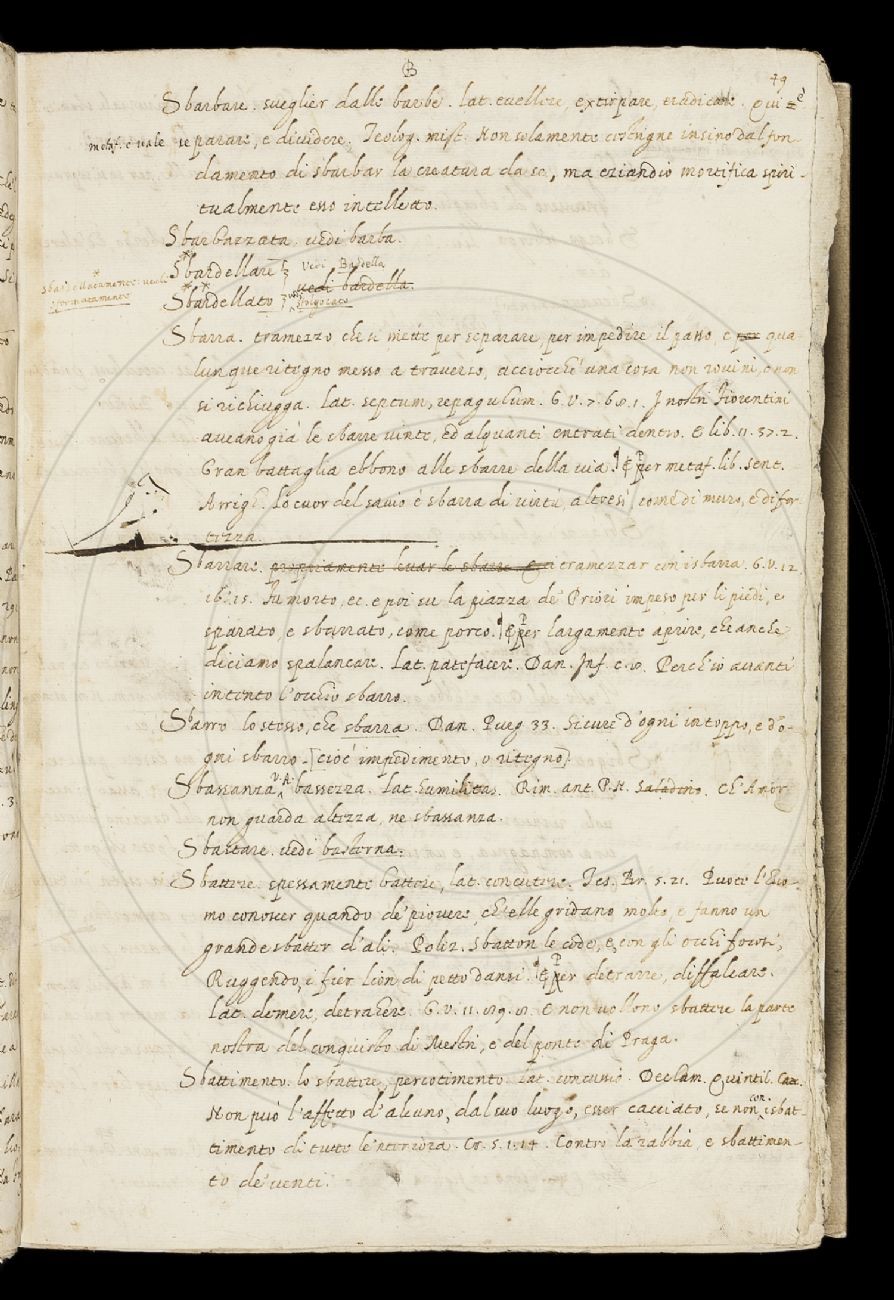 B
49
Sbarbare. sveglier dalle barbe. lat. evellere, extirpare, eradicare. Qui è
metaf. e vale separare, e dividere. Teolog. mist. Non solamente costrigne insino dal fon-
damento di sbarbar la creatura da se, ma eziandio mortifica spiri-
tualmente esso intelletto.
Sbarbazzata. vedi barba.
Sbardellare vedi Bardella
vedi bardella.
sbardellatamente. vedi
sformatamente
Sbardellato
Sbarra. tramezzo che si mette per separare, per impedire il passo, e per qua-
lunque ritegno messo a traverso, acciocché una cosa non rovini, o non
si richiugga. Lat. septum, repagulum. G.V.7.68.1. I nostri Fiorentini
aveano già le sbarre vinte, ed alquanti entrati dentro. E lib. 11. 37.2.
Gran battaglia ebbono alle sbarre della via. ¶ E per metaf. lib. sent.
Arrigh. Lo cuor del savio è sbarra di virtù, altresì come di muro, e di for-
tezza.
Sbarrare. propriamente levar le sbarre tramezzar con isbarra. G.V.12.
16.15. Fu morto, ec. e poi su la piazza de' Priori impeso per li piedi, e
sparato, e sbarrato, come porco. ¶ E per largamente aprire, che anche
diciamo spalancare. Lat. patefacere. Dan. Inf. c. 8. Perch'io avanti
intento l'occhio sbarro.
Sbarro lo stesso, che sbarra. Dan. Purg 33. Sicure d'ogni intoppo, e d'o-
gni sbarro. [cioè impedimento, o ritegno]
Sbassanza V.A. bassezza. Lat. humilitas. Rim. ant. P.N. Saladino. Ch'Amor
non guarda altezza, ne sbassanza.
Sbastare. vedi basterna.
Sbattere. spessamente battere, lat. concutere. Tes. Br. 5.21. Puote l'huo-
mo conoscer quando de' piovere, ch'elle gridano molto, e fanno un
grande sbatter d'ali. Poliz. sbatton le code, e con gli occhi focosi,
Ruggendo, i fier lion di petto dansi. ¶ E per detrarre, diffalcare.
Lat. demere, detrahere. G.V. 11. 89. 8. E non vollono sbattere la parte
nostra del conquisto di Mestri, e del ponte di Praga.
Sbattimento. lo sbattere, percotimento. lat. concussio. Declam. Quintil. Car.
Non può l'affetto d'alcuno, dal suo luogo, esser cacciato, se non con isbat-
timento di tutte le 'nteriora. Cr. 5.1.14. Contro la rabbia, e sbattimen-
to de' venti.